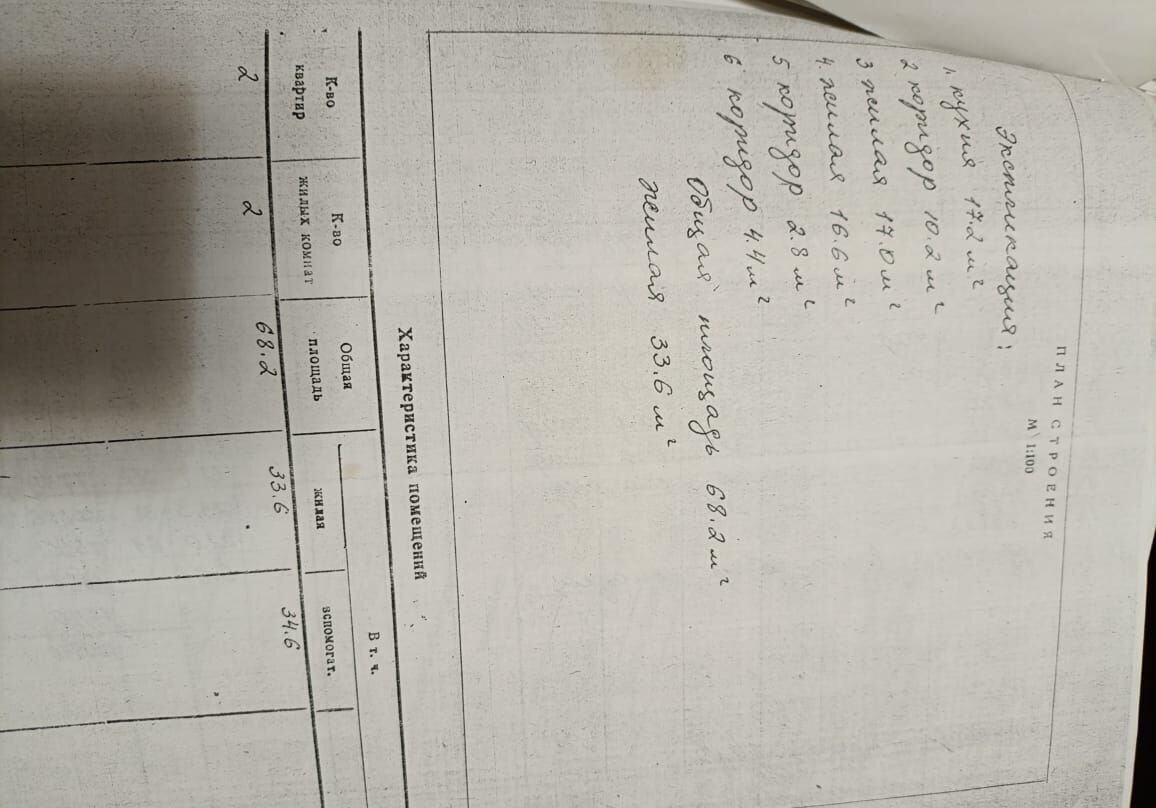 ПЛАН СТРОЕНИЯ
М 1:100
Экспликация:
1. кухня 17.2 м²
2 коридор 10.2 м²
3 жилая 17.0 м²
4. жилая 16.6 м²
5 коридор 2.8 м²
6 коридор 4.4 м²
Общая площадь 68.2 м²
жилая 33.6 м²
Характеристика помещений
К-во квартир К-во жилых комнат Общая площадь В т. ч.
жилая вспомогат.
2 2 68.2 33.6 34.6